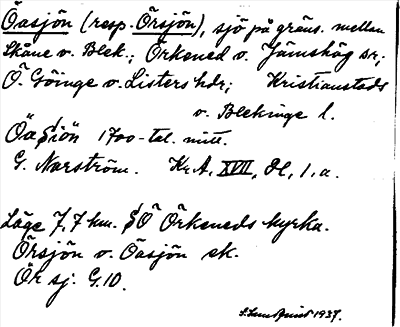 Öasjön (resp. Örsjön), sjö på gräns. mellan
Skåne o. Blek.; Örkened o. Jämshög sr;
Ö. Göinge o. Listers hdr; Kristianstads
o. Blekinge l.
Öa Siön 1700-tal. mitt.
G. Narström. Kr.A. XVII, Bl, 1, a.
Läge 7,7 km. SÖ Örkeneds kyrka.
Örsjön o. Öasjön ek.
Ör sj. G.10.
1937.